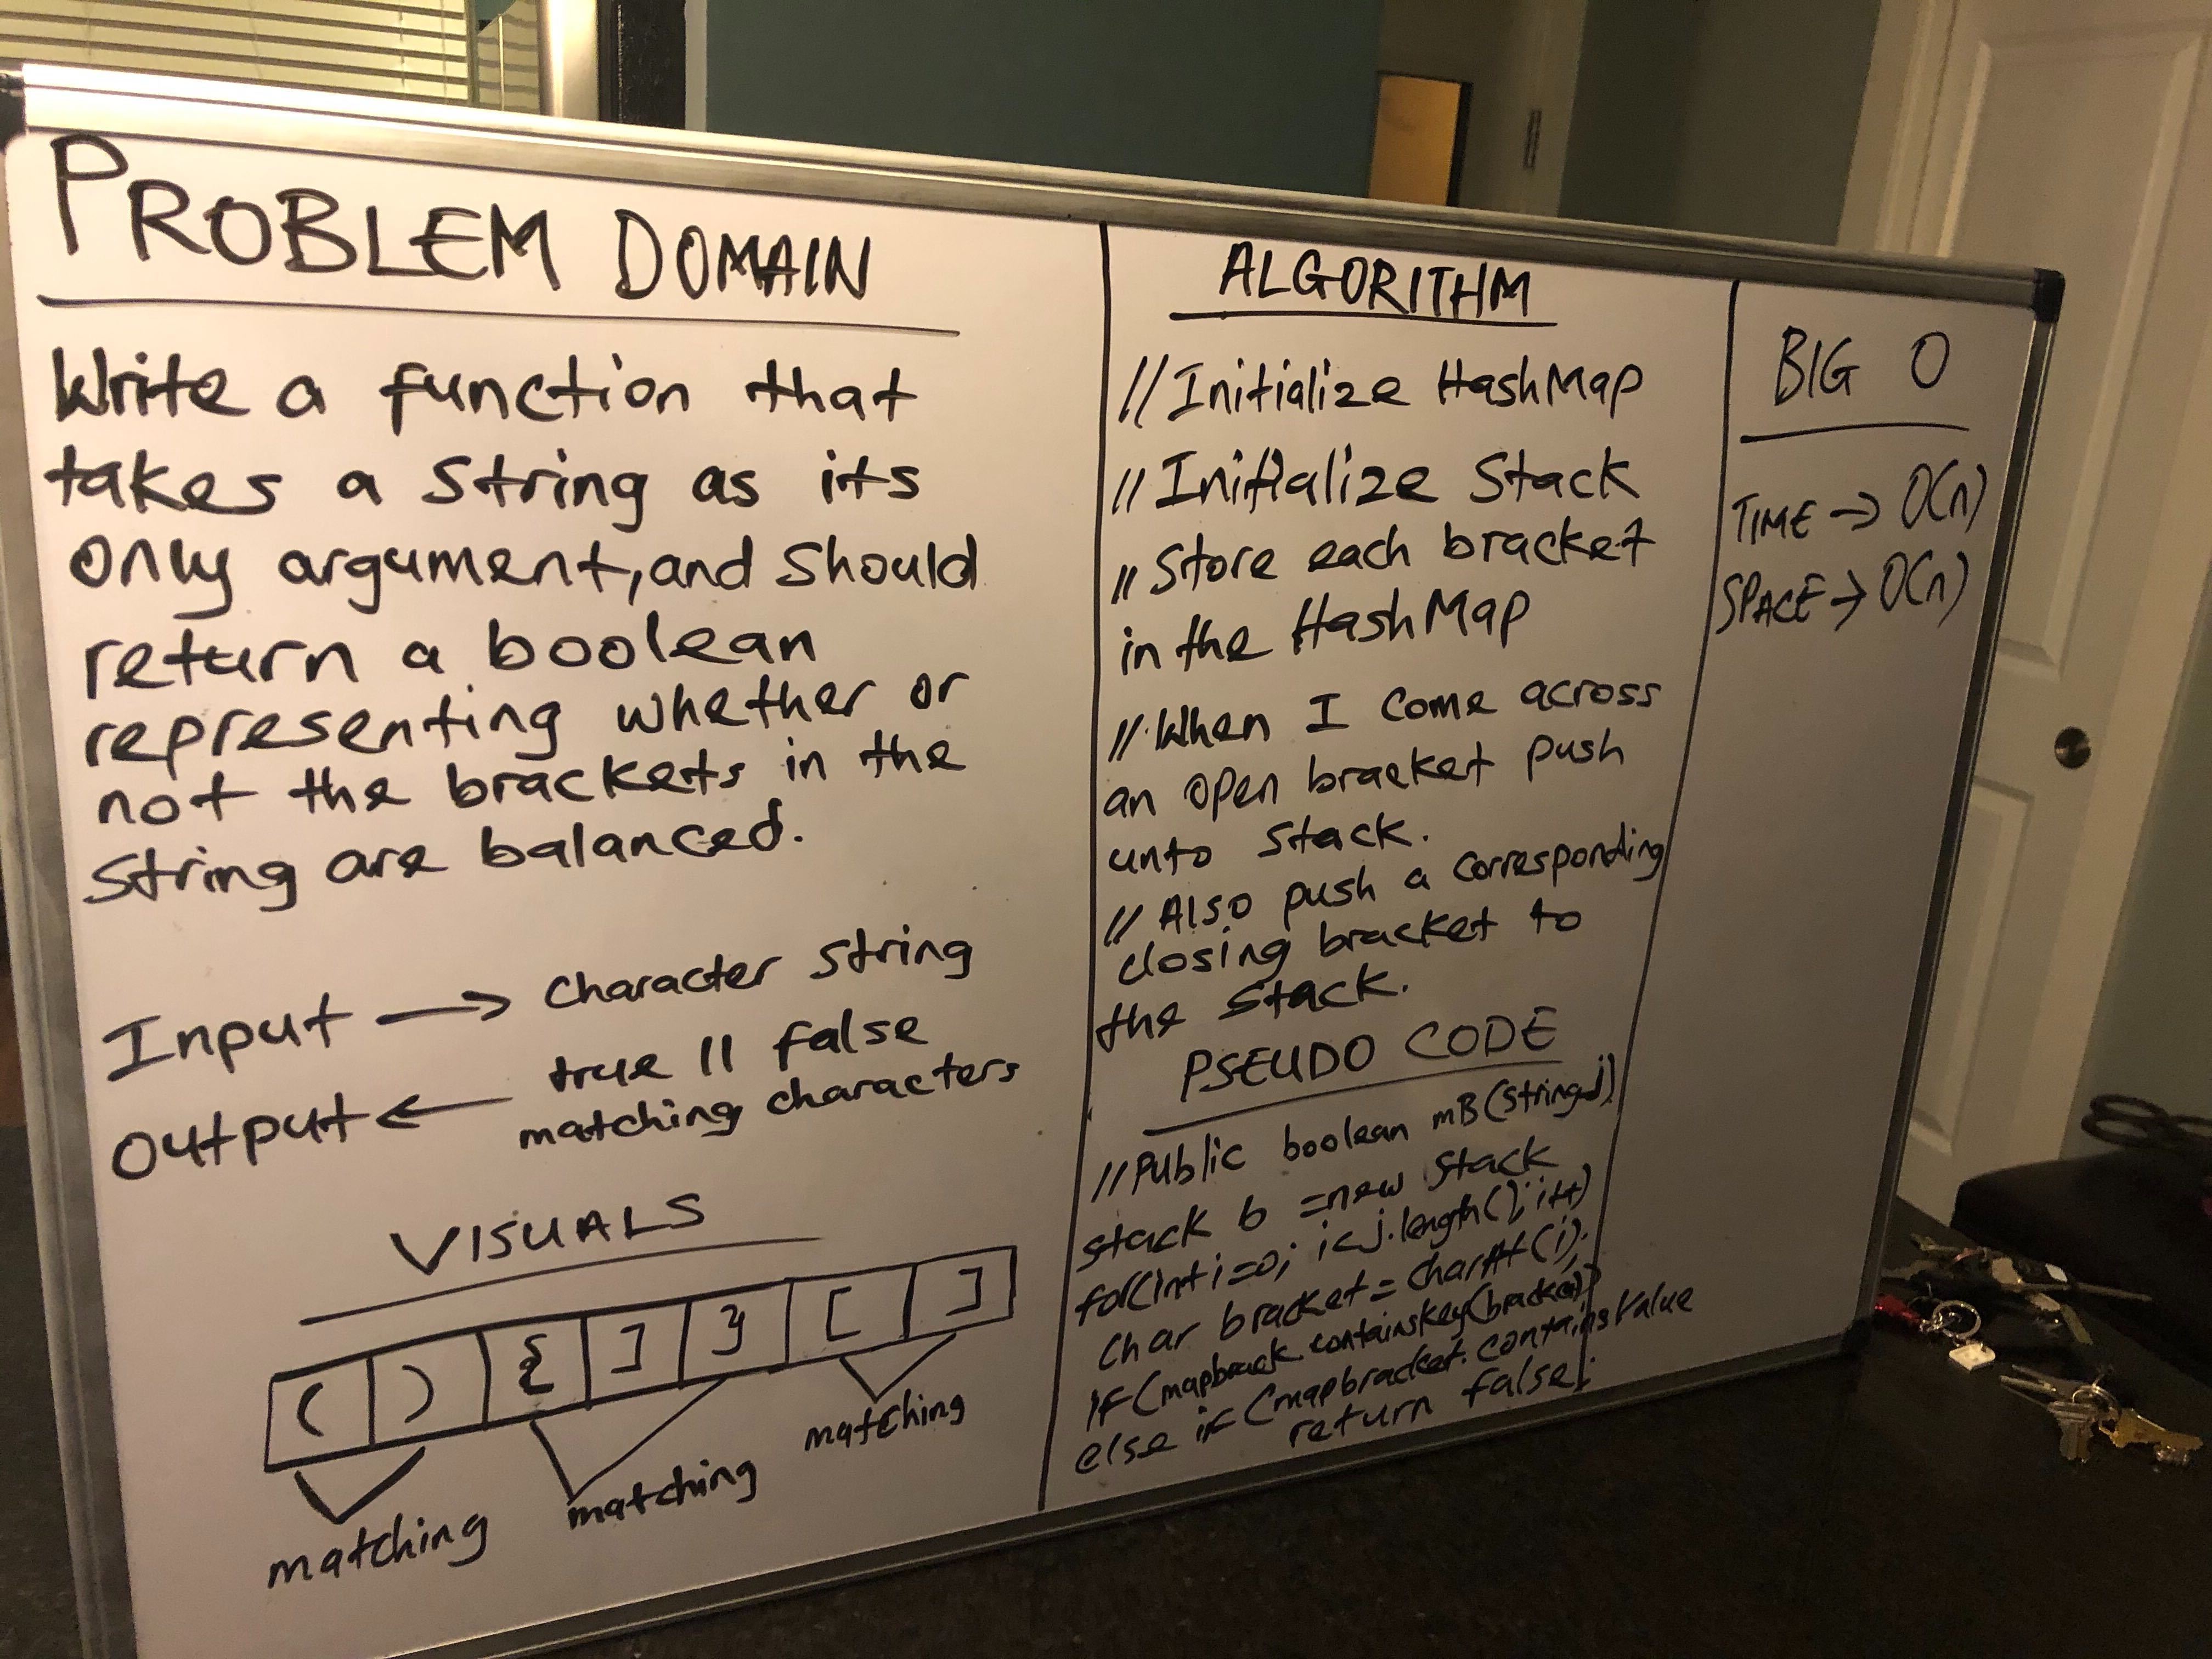 PROBLEM DOMAIN
Write a function that
takes a String as its
only argument, and should
return a boolean
representing whether or
not the brackets in the
string are balanced.
Input → Character String
Output ← true || false
matching characters
VISUALS
( ) { ] } [ ]
matching matching matching
ALGORITHM
// Initialize HashMap
// Initialize Stack
// Store each bracket
in the HashMap
// When I come across
an open bracket push
unto stack.
// Also push a corresponding
closing bracket to
the stack.
PSEUDO CODE
// Public boolean mB(String j)
stack b = new stack
for(int i=0; i<j.length(); i++)
char bracket = charAt(i);
if (mapbrack containsKey(bracket))
else if (mapbracket. containsValue
return false;
BIG O
TIME → O(n)
SPACE → O(n)